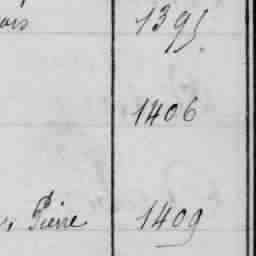 ois 1395
1406
Pierre 1409